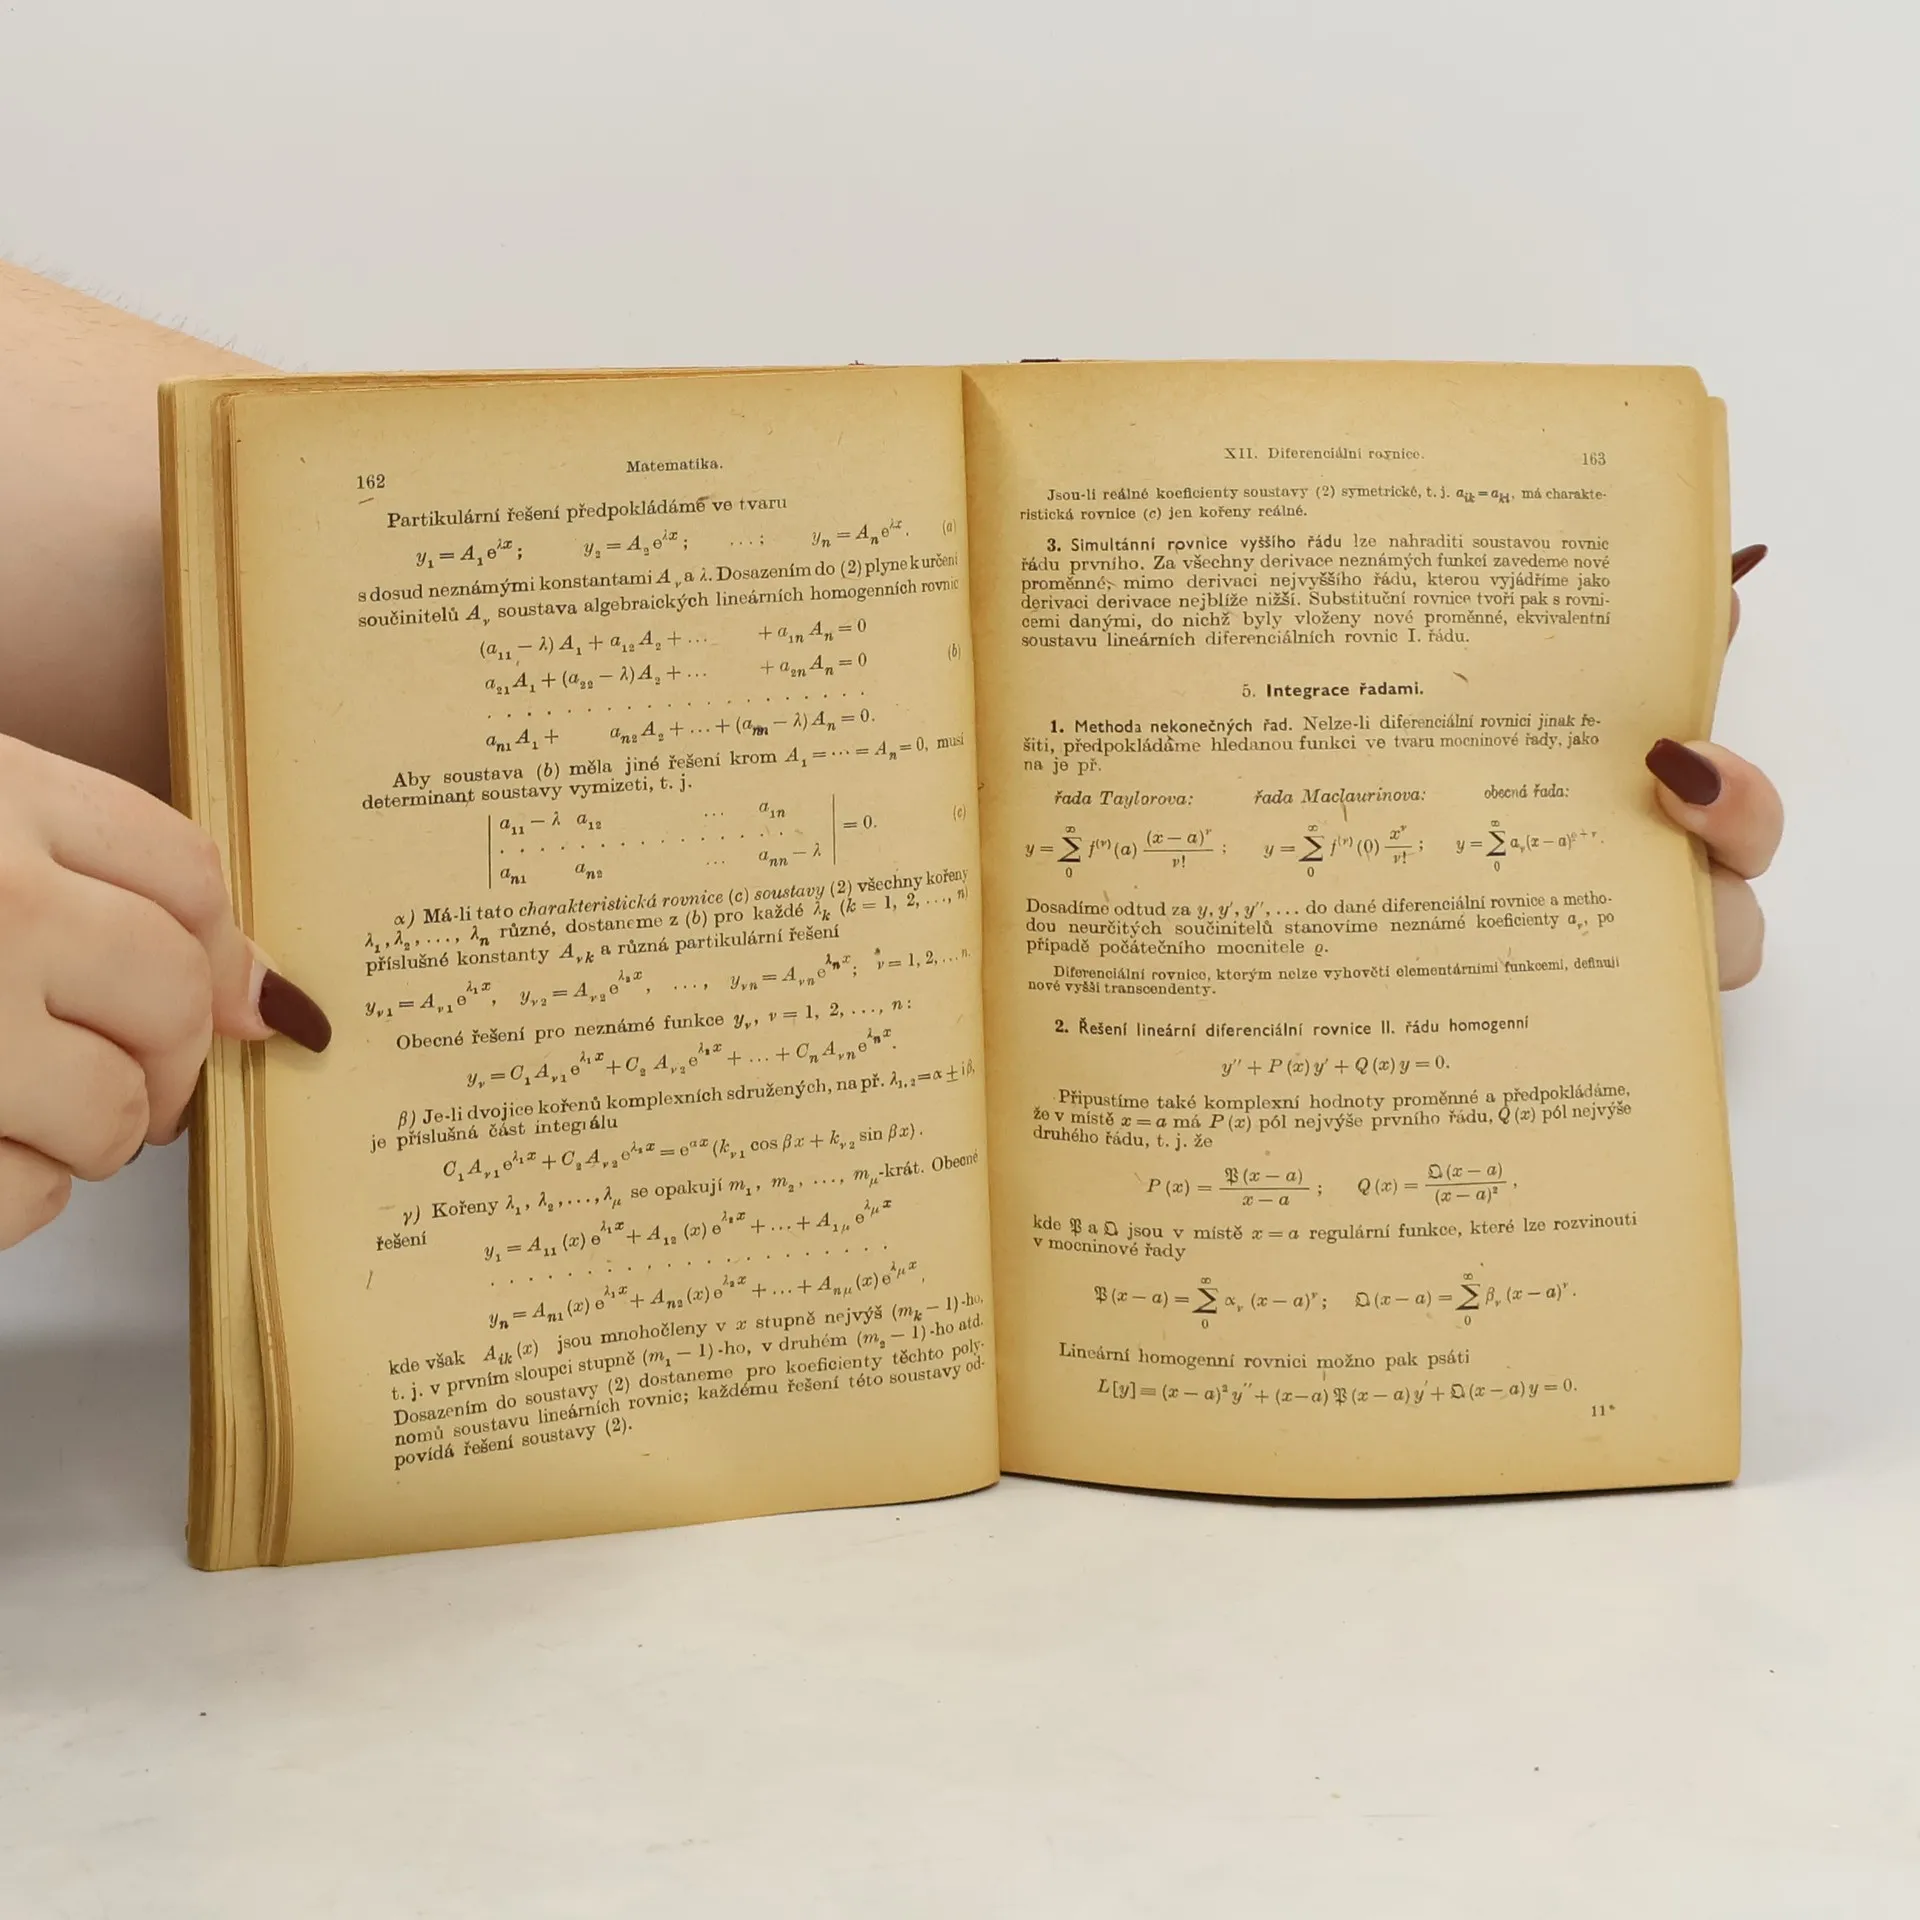 162
Matematika.
Partikulární řešení předpokládáme ve tvaru
y₁ = A₁ e^{λx}; y₂ = A₂ e^{λx}; ...; yₙ = Aₙ e^{λx}. (a)
s dosud neznámými konstantami A_ν a λ. Dosazením do (2) plyne k určení
součinitelů A_ν soustava algebraických lineárních homogenních rovnic
(a₁₁ − λ) A₁ + a₁₂ A₂ + ... + a₁ₙ Aₙ = 0
a₂₁ A₁ + (a₂₂ − λ) A₂ + ... + a₂ₙ Aₙ = 0 (b)
. . . . . . . . . . . . . . .
aₙ₁ A₁ + aₙ₂ A₂ + ... + (aₙₙ − λ) Aₙ = 0.
Aby soustava (b) měla jiné řešení krom A₁ = ··· = Aₙ = 0, musí
determinant soustavy vymizeti, t. j.
| a₁₁ − λ a₁₂ ... a₁ₙ |
| . . . . . . . . . . . . | = 0. (c)
| aₙ₁ aₙ₂ ... aₙₙ − λ |
α) Má-li tato charakteristická rovnice (c) soustavy (2) všechny kořeny
λ₁, λ₂, ..., λₙ různé, dostaneme z (b) pro každé λ_k (k = 1, 2, ..., n)
příslušné konstanty A_{νk} a různá partikulární řešení
y_{ν1} = A_{ν1} e^{λ₁x}, y_{ν2} = A_{ν2} e^{λ₂x}, ..., y_{νn} = A_{νn} e^{λₙx}; ν = 1, 2, ... n.
Obecné řešení pro neznámé funkce y_ν, ν = 1, 2, ..., n:
y_ν = C₁ A_{ν1} e^{λ₁x} + C₂ A_{ν2} e^{λ₂x} + ... + Cₙ A_{νn} e^{λₙx}.
β) Je-li dvojice kořenů komplexních sdružených, na př. λ₁,₂ = α ± iβ,
je příslušná část integrálu
C₁ A_{ν1} e^{λ₁x} + C₂ A_{ν2} e^{λ₂x} = e^{αx} (k_{ν1} cos βx + k_{ν2} sin βx).
γ) Kořeny λ₁, λ₂, ..., λ_μ se opakují m₁, m₂, ..., m_μ-krát. Obecné
řešení
y₁ = A₁₁ (x) e^{λ₁x} + A₁₂ (x) e^{λ₂x} + ... + A_{1μ} e^{λ_μ x}
. . . . . . . . . . . . . . .
yₙ = Aₙ₁ (x) e^{λ₁x} + Aₙ₂ (x) e^{λ₂x} + ... + A_{nμ} (x) e^{λ_μ x},
kde však A_{ik} (x) jsou mnohočleny v x stupně nejvýš (m_k − 1)-ho,
t. j. v prvním sloupci stupně (m₁ − 1)-ho, v druhém (m₂ − 1)-ho atd.
Dosazením do soustavy (2) dostaneme pro koeficienty těchto poly-
nomů soustavu lineárních rovnic; každému řešení této soustavy od-
povídá řešení soustavy (2).
XII. Diferenciální rovnice.
163
Jsou-li reálné koeficienty soustavy (2) symetrické, t. j. a_{ik} = a_{ki}, má charakte-
ristická rovnice (c) jen kořeny reálné.
3. Simultánní rovnice vyššího řádu lze nahraditi soustavou rovnic
řádu prvního. Za všechny derivace neznámých funkcí zavedeme nové
proměnné, mimo derivaci nejvyššího řádu, kterou vyjádříme jako
derivaci derivace nejblíže nižší. Substituční rovnice tvoří pak s rovni-
cemi danými, do nichž byly vloženy nové proměnné, ekvivalentní
soustavu lineárních diferenciálních rovnic I. řádu.
5. Integrace řadami.
1. Methoda nekonečných řad. Nelze-li diferenciální rovnici jinak ře-
šiti, předpokládáme hledanou funkci ve tvaru mocninové řady, jako
na je př.
řada Taylorova: řada Maclaurinova: obecná řada:
y = ∑₀^∞ f^{(ν)}(a) (x − a)^ν / ν! ; y = ∑₀^∞ f^{(ν)}(0) x^ν / ν! ; y = ∑₀^∞ a_ν (x − a)^{ϱ+ν}.
Dosadíme odtud za y, y′, y″, ... do dané diferenciální rovnice a metho-
dou neurčitých součinitelů stanovíme neznámé koeficienty a_ν, po
případě počátečního mocnitele ϱ.
Diferenciální rovnice, kterým nelze vyhověti elementárními funkcemi, definují
nové vyšší transcendenty.
2. Řešení lineární diferenciální rovnice II. řádu homogenní
y″ + P (x) y′ + Q (x) y = 0.
Připustíme také komplexní hodnoty proměnné a předpokládáme,
že v místě x = a má P (x) pól nejvýše prvního řádu, Q (x) pól nejvýše
druhého řádu, t. j. že
P (x) = 𝔓 (x − a) / (x − a) ; Q (x) = 𝔔 (x − a) / (x − a)² ,
kde 𝔓 a 𝔔 jsou v místě x = a regulární funkce, které lze rozvinouti
v mocninové řady
𝔓 (x − a) = ∑₀^∞ α_ν (x − a)^ν; 𝔔 (x − a) = ∑₀^∞ β_ν (x − a)^ν.
Lineární homogenní rovnici možno pak psáti
L [y] ≡ (x − a)² y″ + (x − a) 𝔓 (x − a) y′ + 𝔔 (x − a) y = 0.
11*